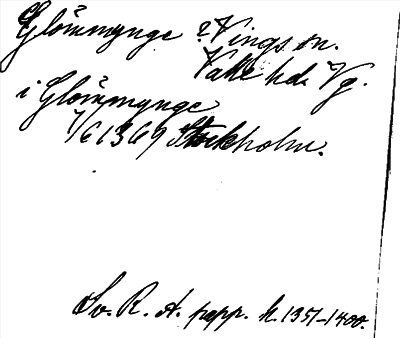 Glömmynge ? Vings sn.
Valle hd. Vg.
i Glömmynge
1/6 1369 Stockholm.
Sv. R. A. papp. h. 1351-1400.